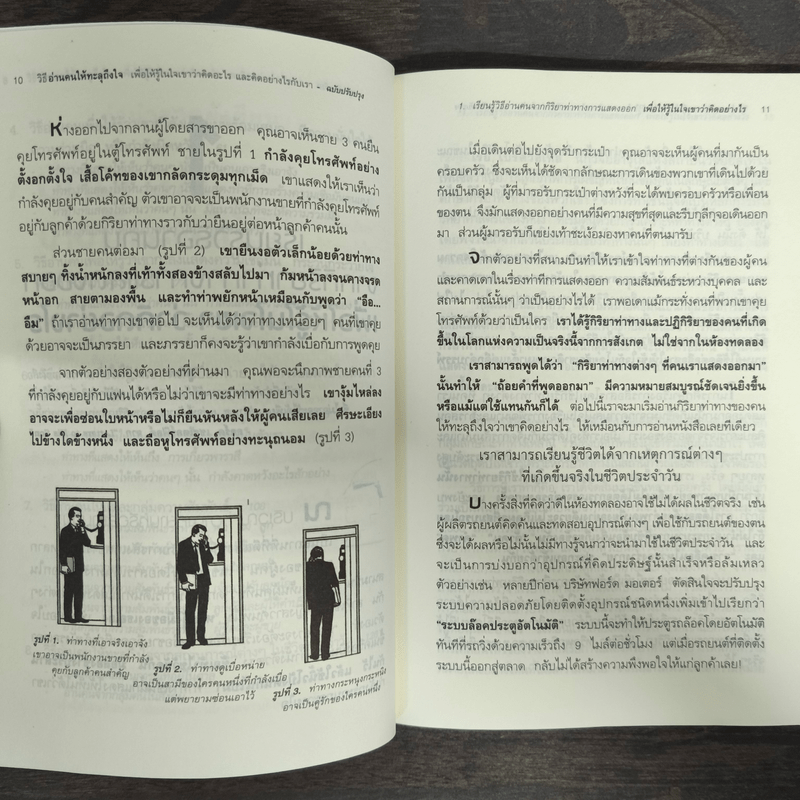 10 วิธีอ่านคนให้ทะลุถึงใจ เพื่อให้รู้ในใจเขาว่าคิดอะไร และคิดอย่างไรกับเรา - ฉบับปรับปรุง
ห่างออกไปจากลานผู้โดยสารขาออก คุณอาจเห็นชาย 3 คนยืน
คุยโทรศัพท์อยู่ในตู้โทรศัพท์ ชายในรูปที่ 1 กำลังคุยโทรศัพท์อย่าง
ตั้งอกตั้งใจ เสื้อโค้ทของเขากลัดกระดุมทุกเม็ด เขาแสดงให้เราเห็นว่า
กำลังคุยอยู่กับคนสำคัญ ตัวเขาอาจจะเป็นพนักงานขายที่กำลังคุยโทรศัพท์
อยู่กับลูกค้าด้วยกิริยาท่าทางราวกับว่ายืนอยู่ต่อหน้าลูกค้าคนนั้น
ส่วนชายคนต่อมา (รูปที่ 2) เขายืนงอตัวเล็กน้อยด้วยท่าทาง
สบายๆ ทิ้งน้ำหนักลงที่เท้าทั้งสองข้างสลับไปมา ก้มหน้าลงจนคางจรด
หน้าอก สายตามองพื้น และทำท่าพยักหน้าเหมือนกับพูดว่า “อือ...
อืม” ถ้าเราอ่านท่าทางเขาต่อไป จะเห็นได้ว่าท่าทางเหนื่อยๆ คนที่เขาคุย
ด้วยอาจจะเป็นภรรยา และภรรยาก็คงจะรู้ว่าเขากำลังเบื่อกับการพูดคุย
จากตัวอย่างสองตัวอย่างที่ผ่านมา คุณพอจะนึกภาพชายคนที่ 3
ที่กำลังคุยอยู่กับแฟนได้หรือไม่ว่าเขาจะมีท่าทางอย่างไร เขางุ้มไหล่ลง
อาจจะเพื่อซ่อนใบหน้าหรือไม่ก็ยืนหันหลังให้ผู้คนเสียเลย ศีรษะเอียง
ไปข้างใดข้างหนึ่ง และถือหูโทรศัพท์อย่างทะนุถนอม (รูปที่ 3)
รูปที่ 1. ท่าทางที่เอาจริงเอาจัง
เขาอาจจะเป็นพนักงานขายที่กำลัง
คุยกับลูกค้าคนสำคัญ
รูปที่ 2. ท่าทางดูเบื่อหน่าย
อาจจะเป็นสามีของใครคนหนึ่งที่กำลังเบื่อ
แต่พยายามซ่อนเอาไว้
รูปที่ 3. ท่าทางกระหนุงกระหนิง
อาจจะเป็นคู่รักของใครคนหนึ่ง
1 เรียนรู้วิธีอ่านคนจากกิริยาท่าทางการแสดงออก เพื่อให้รู้ในใจเขาว่าคิดอย่างไร 11
เมื่อเดินต่อไปยังจุดรับกระเป๋า คุณอาจจะเห็นผู้คนที่มากันเป็น
ครอบครัว ซึ่งจะเห็นได้ชัดจากลักษณะการเดินของพวกเขาที่เดินไปด้วย
กันเป็นกลุ่ม ผู้ที่มารอรับกระเป๋าต่างหวังที่จะได้พบครอบครัวหรือเพื่อน
ของตน จึงมักแสดงออกอย่างคนที่มีความสุขที่สุดและรีบกุลีกุจอเดินออก
มา ส่วนผู้มารอรับก็เขย่งเท้าชะเง้อมองหาคนที่ตนมารับ
จากตัวอย่างที่สนามบินทำให้เราเข้าใจท่าทีที่ต่างกันของผู้คน
และคาดเดาในเรื่องท่าทีการแสดงออก ความสัมพันธ์ระหว่างบุคคล และ
สถานการณ์นั้นๆ ว่าเป็นอย่างไรได้ เราพอเดาแม้กระทั่งคนที่พวกเขาคุย
โทรศัพท์ด้วยว่าเป็นใคร เราได้รู้กิริยาท่าทางและปฏิกิริยาของคนที่เกิด
ขึ้นในโลกแห่งความเป็นจริงนี้จากการสังเกต ไม่ใช่จากในห้องทดลอง
เราสามารถพูดได้ว่า “กิริยาท่าทางต่างๆ ที่คนเราแสดงออกมา”
นั้นทำให้ “ถ้อยคำที่พูดออกมา” มีความหมายสมบูรณ์ชัดเจนยิ่งขึ้น
หรือแม้แต่ใช้แทนกันก็ได้ ต่อไปนี้เราจะมาเริ่มอ่านกิริยาท่าทางของคน
ให้ทะลุถึงใจว่าเขาคิดอย่างไร ให้เหมือนกับการอ่านหนังสือเลยทีเดียว
เราสามารถเรียนรู้ชีวิตได้จากเหตุการณ์ต่างๆ
ที่เกิดขึ้นจริงในชีวิตประจำวัน
บางครั้งสิ่งที่คิดว่าดีในห้องทดลองอาจใช้ไม่ได้ผลในชีวิตจริง เช่น
ผู้ผลิตรถยนต์คิดค้นและทดสอบอุปกรณ์ต่างๆ เพื่อใช้กับรถยนต์ของตน
ซึ่งจะได้ผลหรือไม่นั้นไม่มีทางรู้จนกว่าจะนำมาใช้ในชีวิตประจำวัน และ
จะเป็นการบ่งบอกว่าอุปกรณ์ที่คิดประดิษฐ์นั้นสำเร็จหรือล้มเหลว
ตัวอย่างเช่น หลายปีก่อน บริษัทฟอร์ด มอเตอร์ ตัดสินใจจะปรับปรุง
ระบบความปลอดภัยโดยติดตั้งอุปกรณ์ชนิดหนึ่งเพิ่มเข้าไปเรียกว่า
“ระบบล็อคประตูอัตโนมัติ” ระบบนี้จะทำให้ประตูรถล็อคโดยอัตโนมัติ
ทันทีที่รถวิ่งด้วยความเร็วถึง 9 ไมล์ต่อชั่วโมง แต่เมื่อรถยนต์ที่ติดตั้ง
ระบบนี้ออกสู่ตลาด กลับไม่ได้สร้างความพึงพอใจให้แก่ลูกค้าเลย!